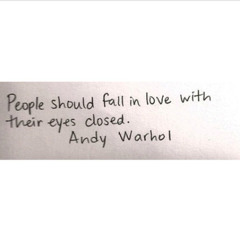 People should fall in love with
their eyes closed.
Andy Warhol